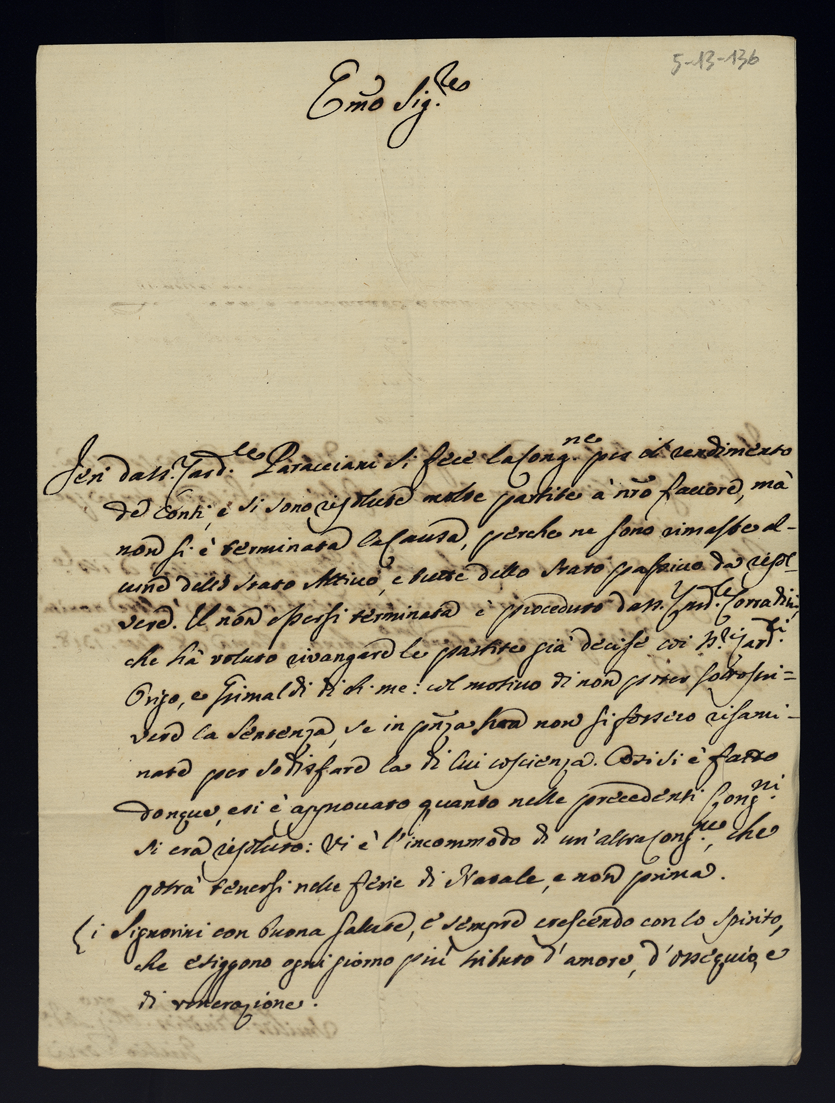 5-13-136
Emo Sig.re
Jeri dal S. Card.le Paracciani si fece la Cong.ne per il rendimento
de Conti, e si sono risolute molte partite à nr̃o favore, mà
non si è terminata la Causa, perche ne sono rimaste al-
cune dello stato Attivo, e tutte dello stato passivo da risol-
vere. Il non essersi terminata è proceduto dal S. Card.le Corradini,
che hà voluto rivangare le partite già decise coi SS.ri Card.li
Origo, e Grimaldi di ch: me: col motivo di non poter sottoscri=
vere la sentenza, se in pñza sua non si fossero risami-
nate per sodisfare la di lui coscienza. Così si è fatto
donque, e si è approvato quanto nelle precedenti Cong.ni
si era risoluto: Vi è l'incommodo di un'altra Cong.ne, che
potrà tenersi nelle ferie di Natale, e non prima.
Li Signorini con buona salute, e sempre crescendo con lo spirito,
che esiggono ogni giorno più tributo d'amore, d'ossequio, e
di venerazione.